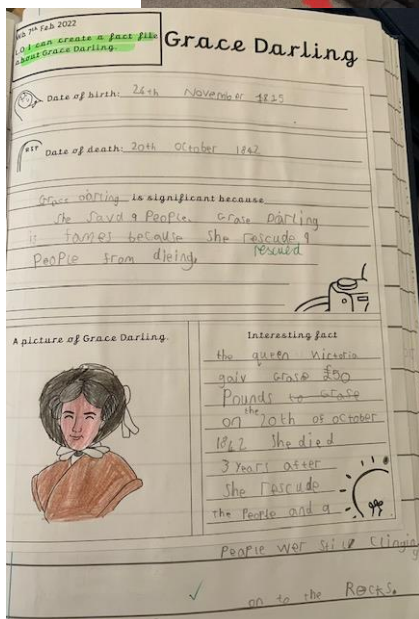 7th Feb 2022
L.O I can create a fact file
about Grace Darling.
Grace Darling
Date of birth: 24th November 1815
RIP
Date of death: 20th October 1842
Grace Darling is significant because
she savd 9 People. Grase Darling
is fames because she rescude 9
rescued
People from dieing.
A picture of Grace Darling.
Interesting fact
the queen Victoria
gaiv Grase £50
Pounds to Grase
on the 20th of october
1842 She died
3 Years after
She rescude
the People and 9
People wer still Clinging
on to the Rocks.